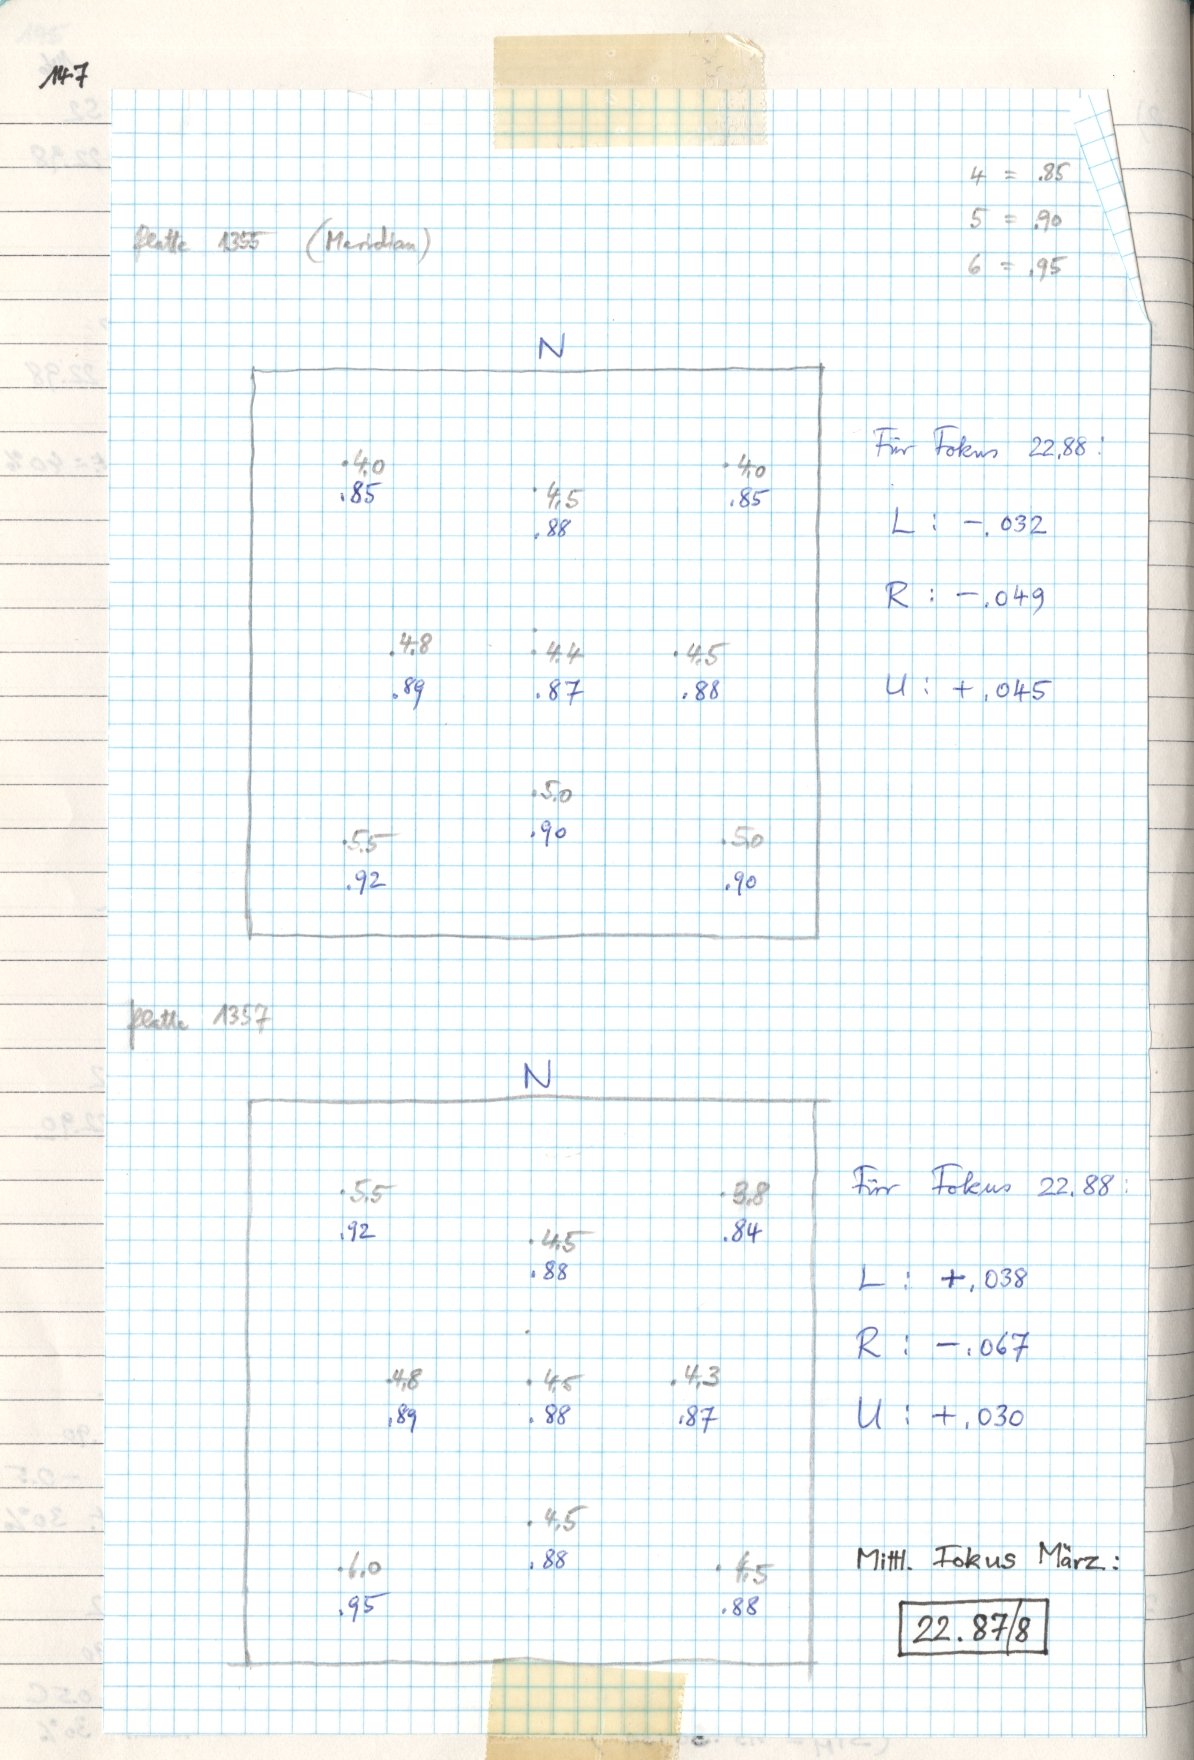 147
4 = .85
5 = .90
6 = .95
Platte 1355 (Meridian)
N
.4.0 .4.0
.85 .4.5 .85
.88
Für Fokus 22.88:
L : -.032
R : -.049
U : +.045
.4.8 .4.4 .4.5
.89 .87 .88
.5.0
.90
.5.5 .5.0
.92 .90
Platte 1357
N
.5.5 .3.8
.92 .84
.4.5
.88
Für Fokus 22.88:
L : +.038
R : -.067
U : +.030
.4.8 .4.5 .4.3
.89 .88 .87
.4.5
.88
.6.0 .4.5
.95 .88
Mittl. Fokus März:
22.87/8